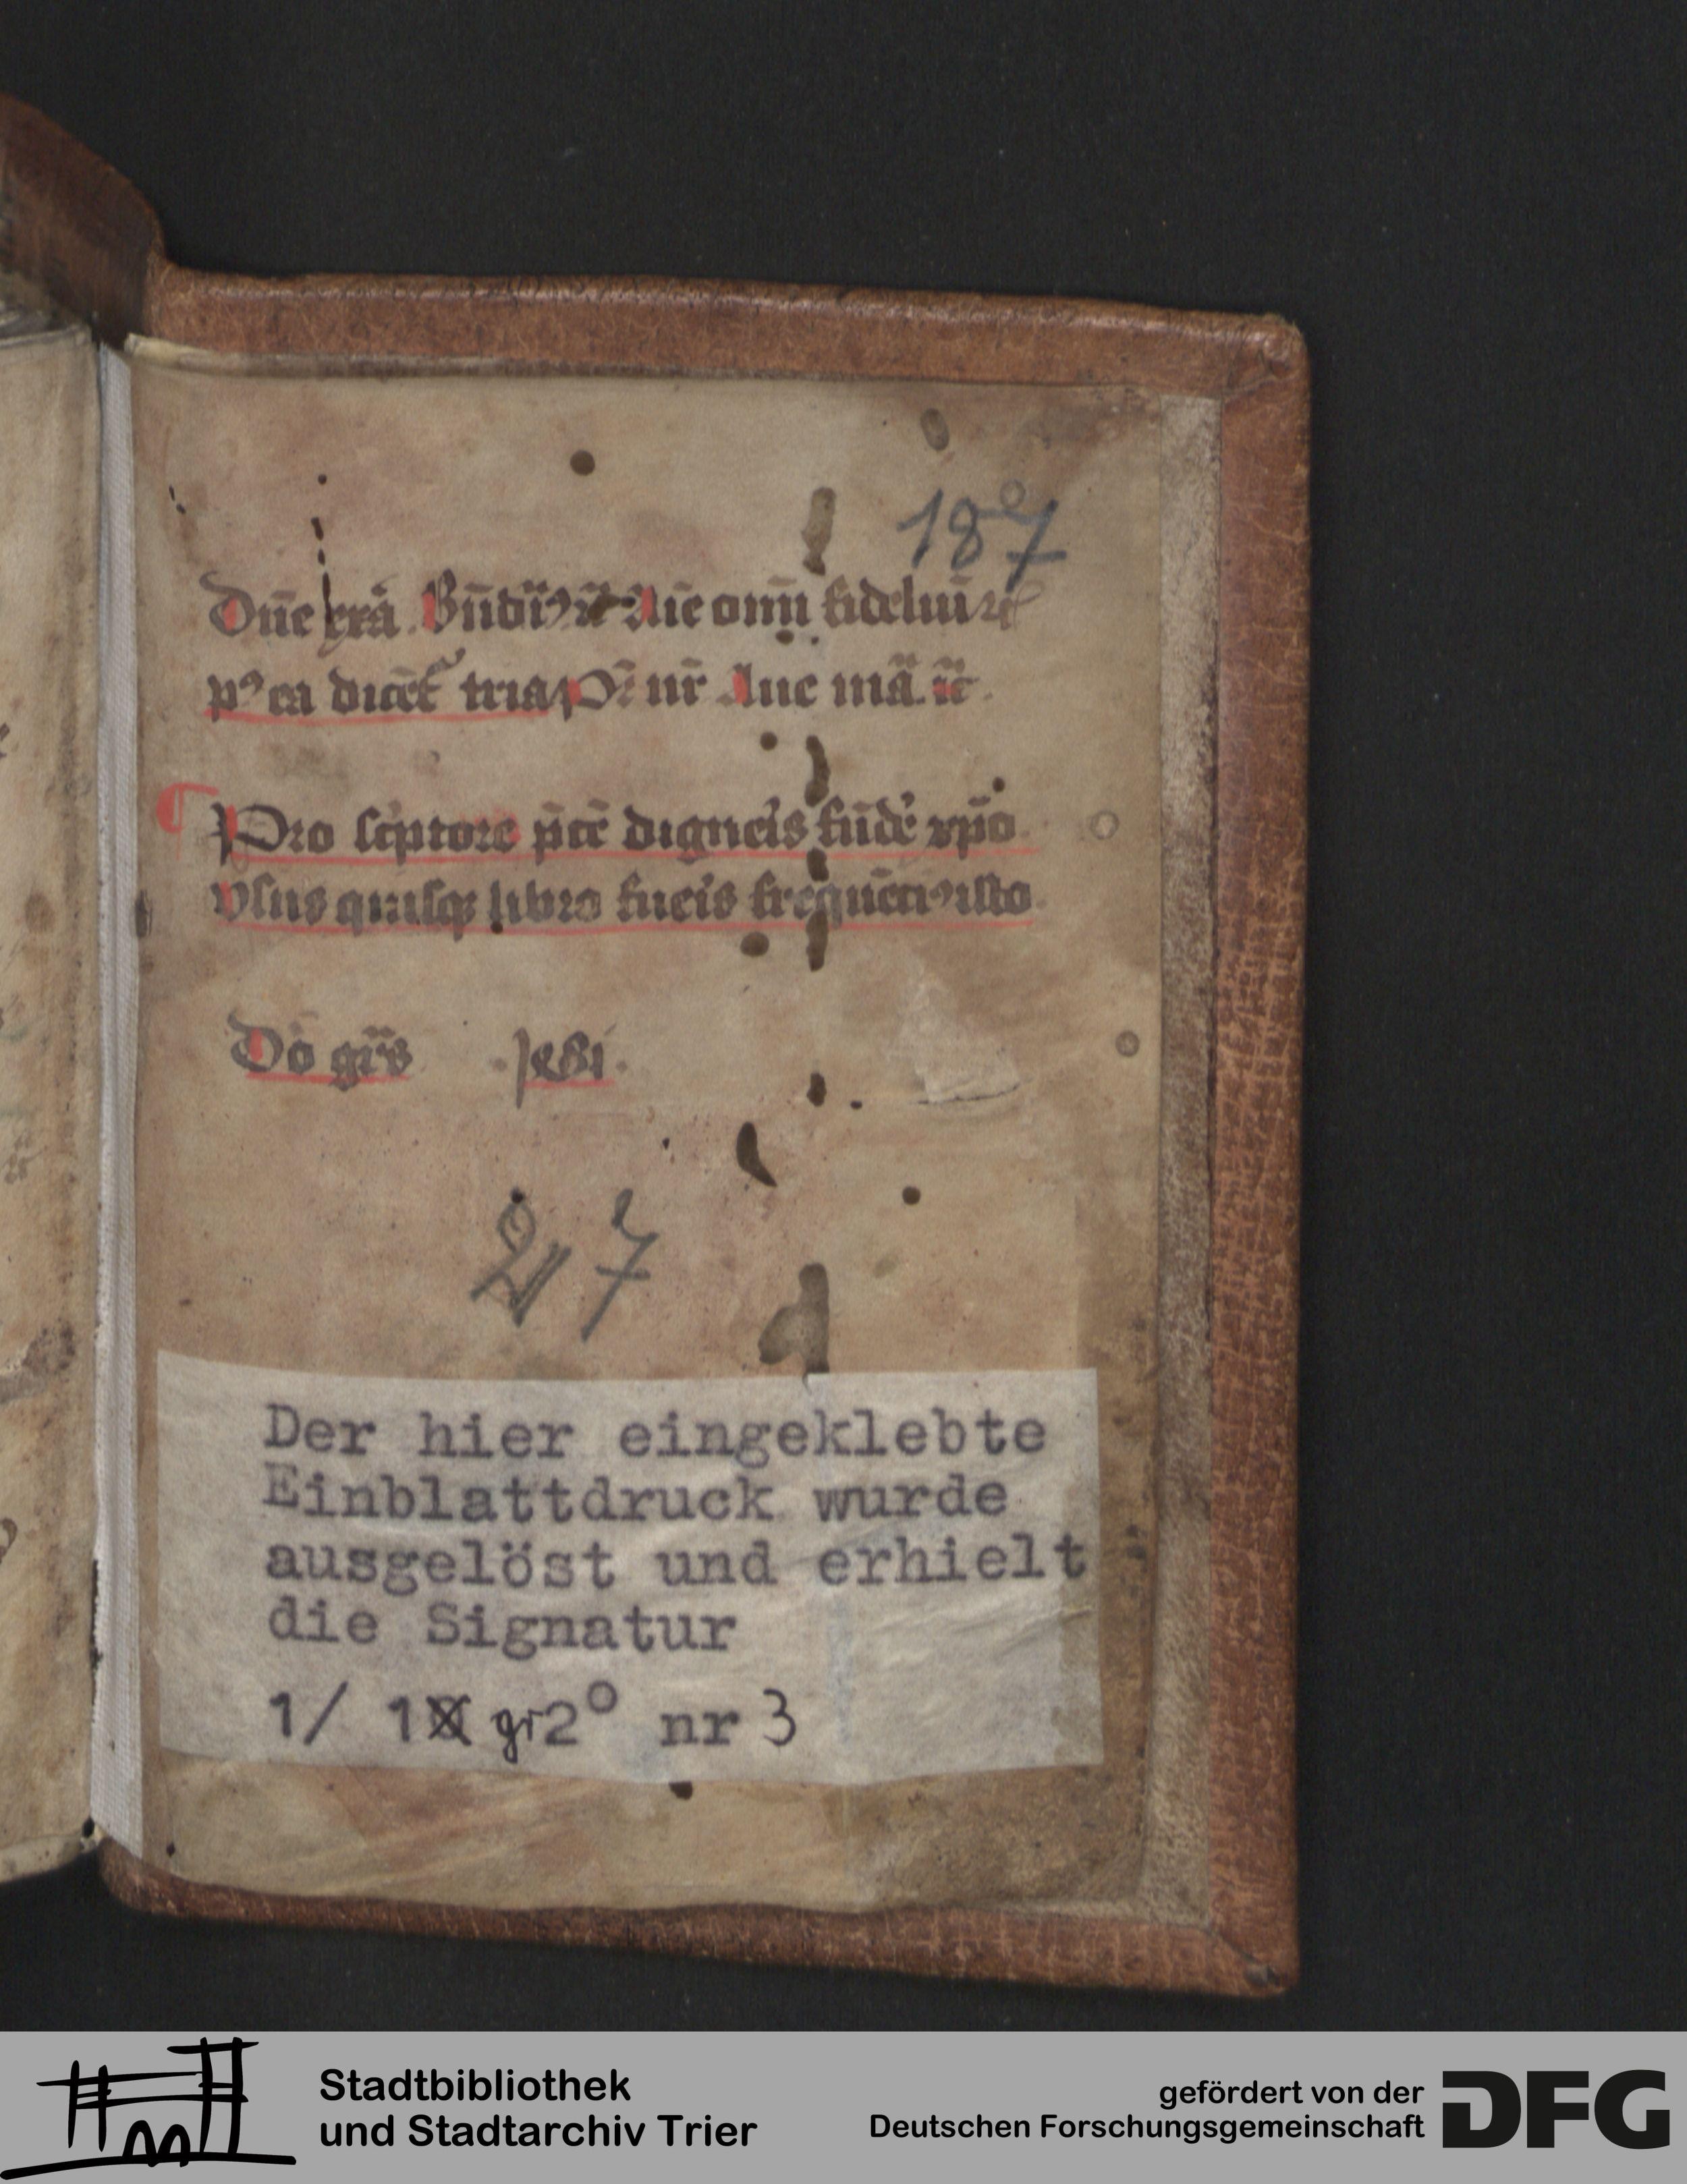 187
Dn̄e exā. Bn̄dic᷒ Aīe om̄ fidelīu
p᷒ ea dicēt᷑ tria Pr̄ nr̄ Aue mā. ī
Pro sc͛ptore p̄cē digneīs fūde͛ xp̄o
Vsus quisq; libro fueīs frequēci᷒ isto
Dō grās Jesu
27
Der hier eingeklebte
Einblattdruck wurde
ausgelöst und erhielt
die Signatur
1/ 1 gr2° nr 3
Stadtbibliothek
und Stadtarchiv Trier
gefördert von der
Deutschen Forschungsgemeinschaft
DFG